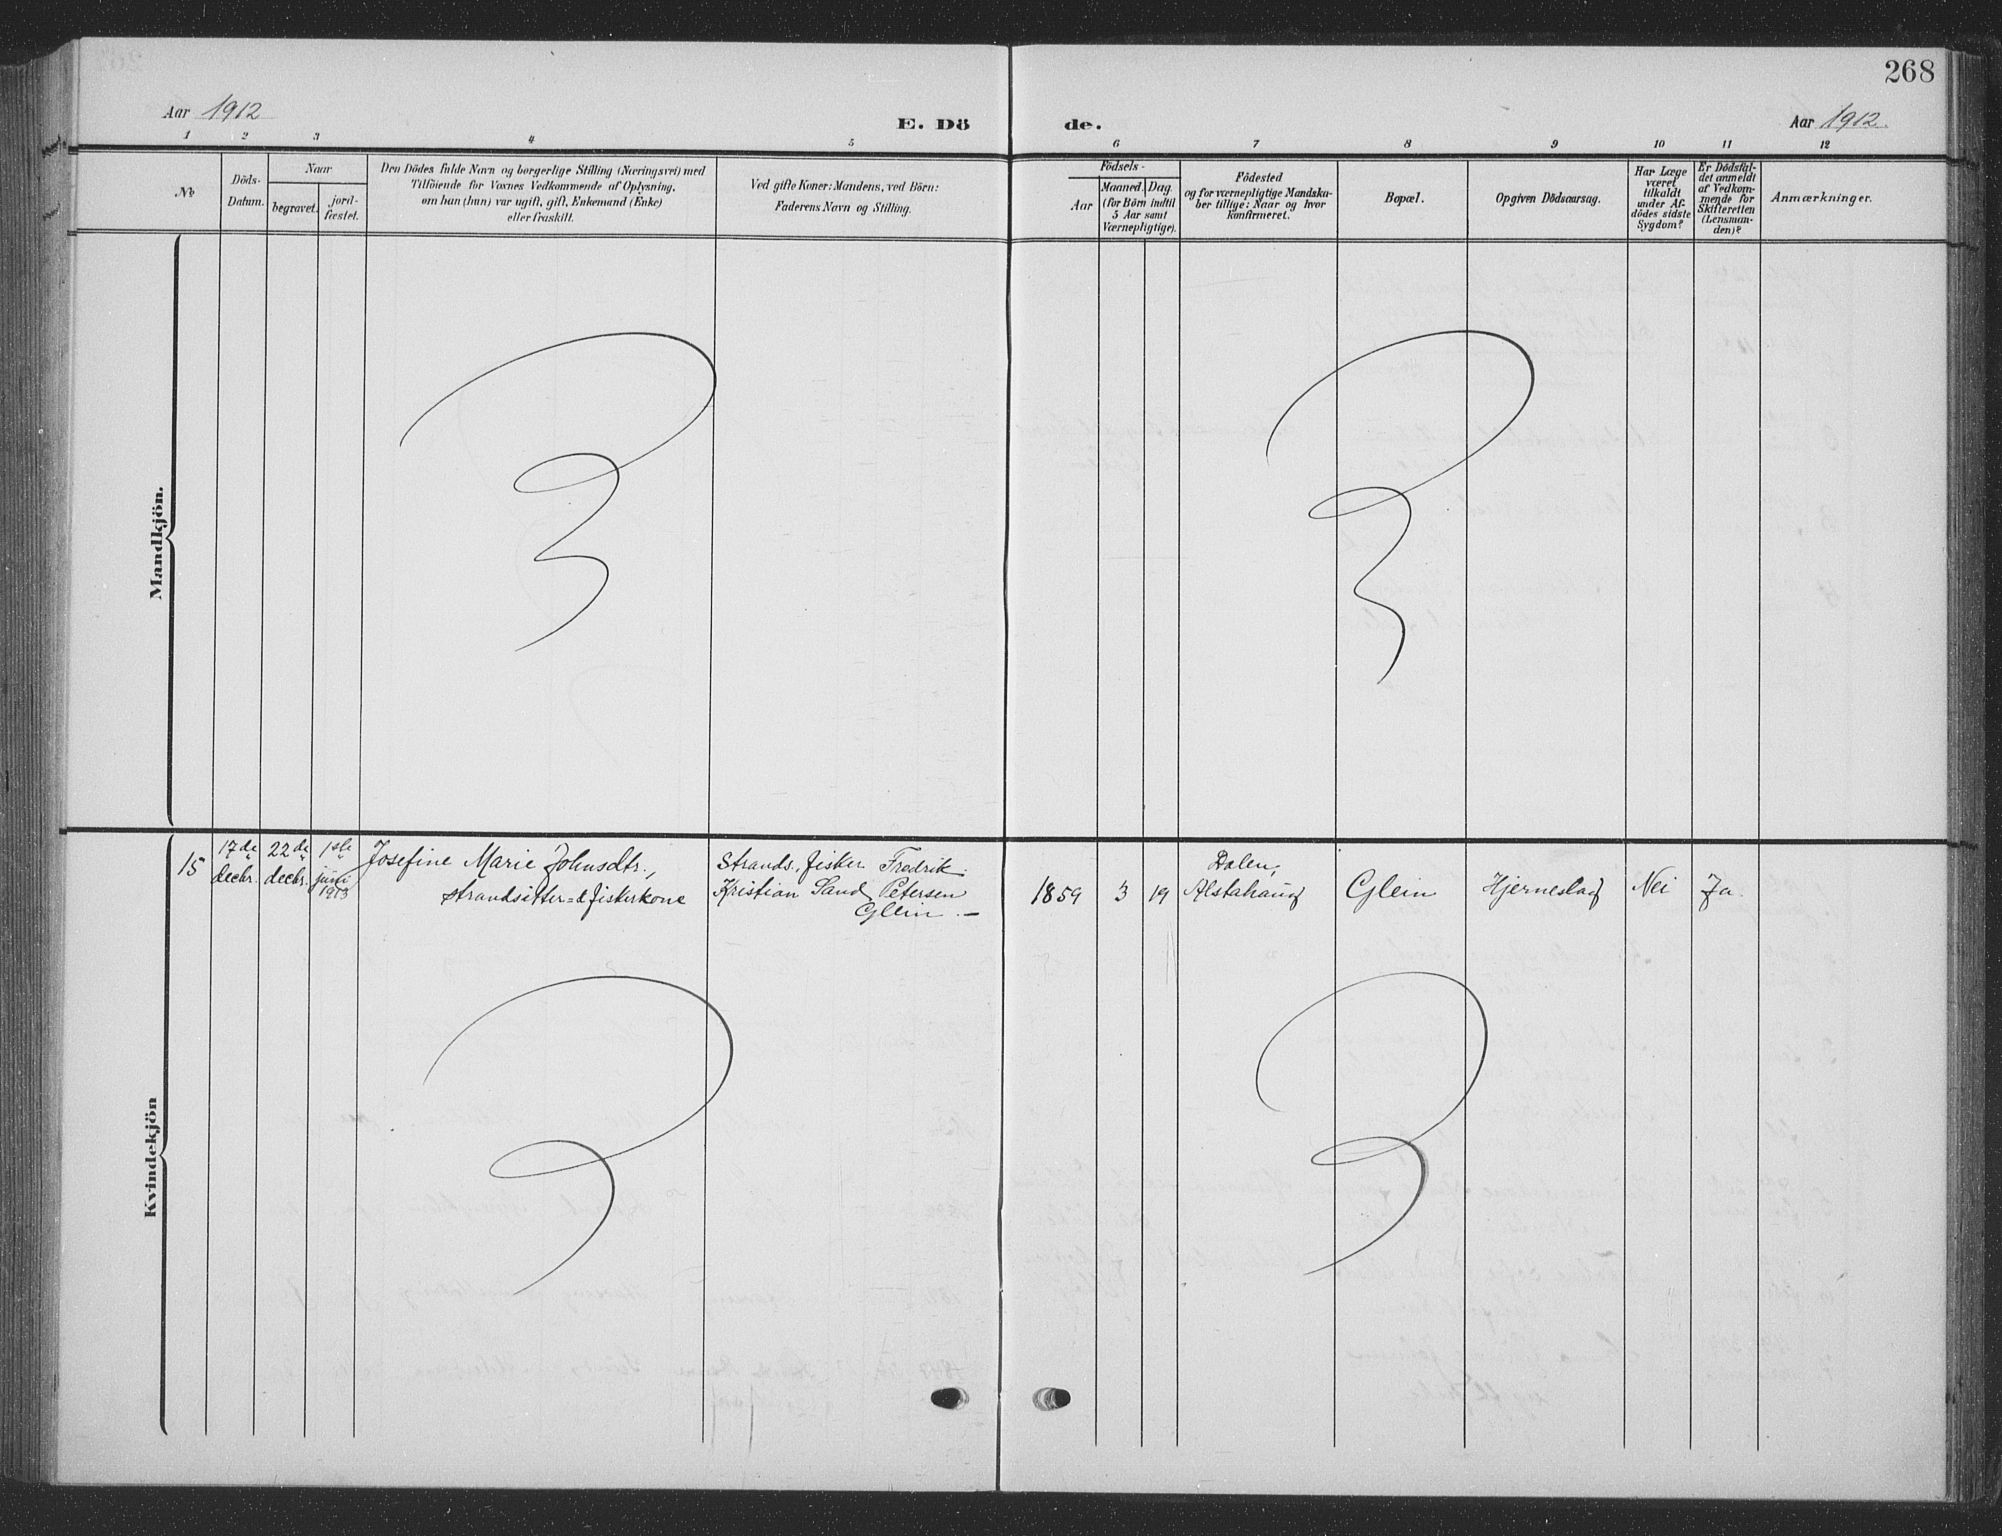 268
Aar 1912
E. Dö
de.
Aar 1912.
1 2 3 4 5 6 7 8 9 10 11 12
No
Döds-
Datum.
Naar
begravet.
jord-
fæstet.
Den Dödes fulde Navn og borgerlige Stilling (Næringsvei) med
Tilföiende for Voxnes Vedkommende af Oplysning,
om han (hun) var ugift, gift, Enkemand (Enke)
eller fraskilt.
Ved gifte Koner: Mandens, ved Börn:
Faderens Navn og Stilling.
Födsels-
Aar
Maaned. Dag.
(for Börn indtil
5 Aar samt
Værnepligtige).
Födested
og for værnepligtige Mandska-
ber tillige: Naar og hvor
konfirmeret.
Bopæl.
Opgiven Dödsaarsag.
Har Læge
været
tilkaldt
under Af-
dödes sidste
Sygdom?
Er Dödsfal-
det anmeldt
af Vedkom-
mende for
Skifteretten
(Lensman-
den)?
Anmærkninger.
Mandkjön.
Kvindekjön
15
17de
decbr.
22de
decbr.
1ste
juni
1913
Josefine Marie Johnsdtr.,
strandsitter= & fiskerkone
Strands., fisker Fredrik
Kristian Sand Petersen
Glein. —
1859 3 19
Dalen,
Alstahaug
Glein
Hjerneslag
Nei
Ja.